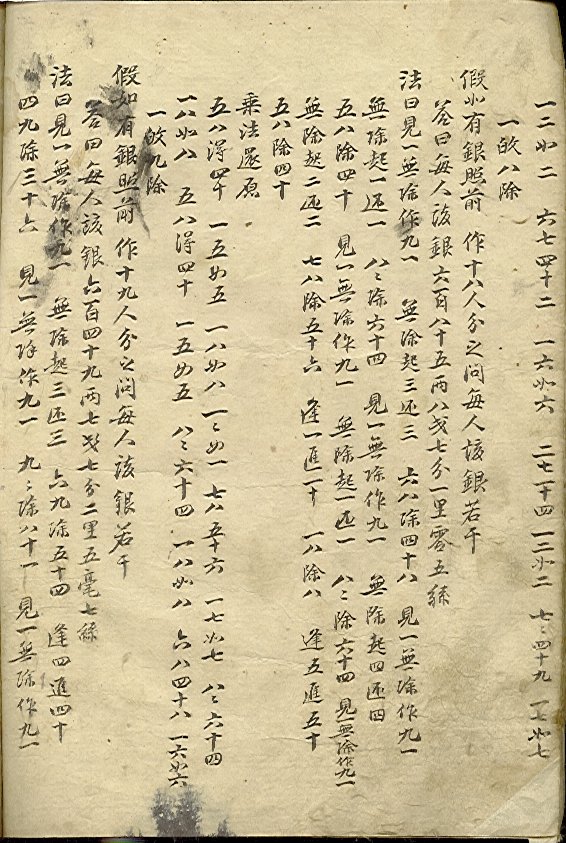 一二如二 六七四十二 一六如六 二七一十四 一二如二 七〻四十九 一七如七
一皈八除
假如有銀照前 作十八人分之問每人該銀若干
答曰每人該銀六百八十五両八戔七分一里零五絲
法曰見一無除作九一 無除起三还三 六八除四十八 見一無除作九一
無除起一还一 八〻除六十四 見一無除作九一 無除起四还四
五八除四十 見一無除作九一 無除起一还一 八〻除六十四 見一無除作九一
無除起二还二 七八除五十六 逢一進一十 一八除八 逢五進五十
五八除四十
乗法還原
五八得四十 一五如五 一八如八 一〻如一 七八五十六 一七如七 八〻六十四
一八如八 五八得四十 一五如五 八〻六十四 一八如八 六八四十八 一六如六
一皈九除
假如有銀照前 作十九人分之問每人該銀若干
答曰每人該銀六百四十九両七戔七分二里五毫七絲
法曰見一無除作九一 無除起三还三 六九除五十四 逢四進四十
四九除三十六 見一無除作九一 九〻除八十一 見一無除作九一